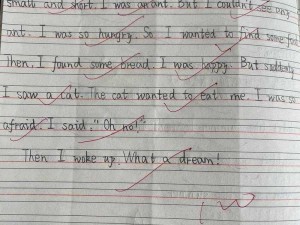 small and short. I was an ant. But I couldn't see any
ant. I was so hungry. So I wanted to find some food
Then, I found some bread. I was happy. But suddenly
I saw a cat. The cat wanted to eat me. I was so
afraid. I said, "Oh no!"
Then I woke up. What a dream!